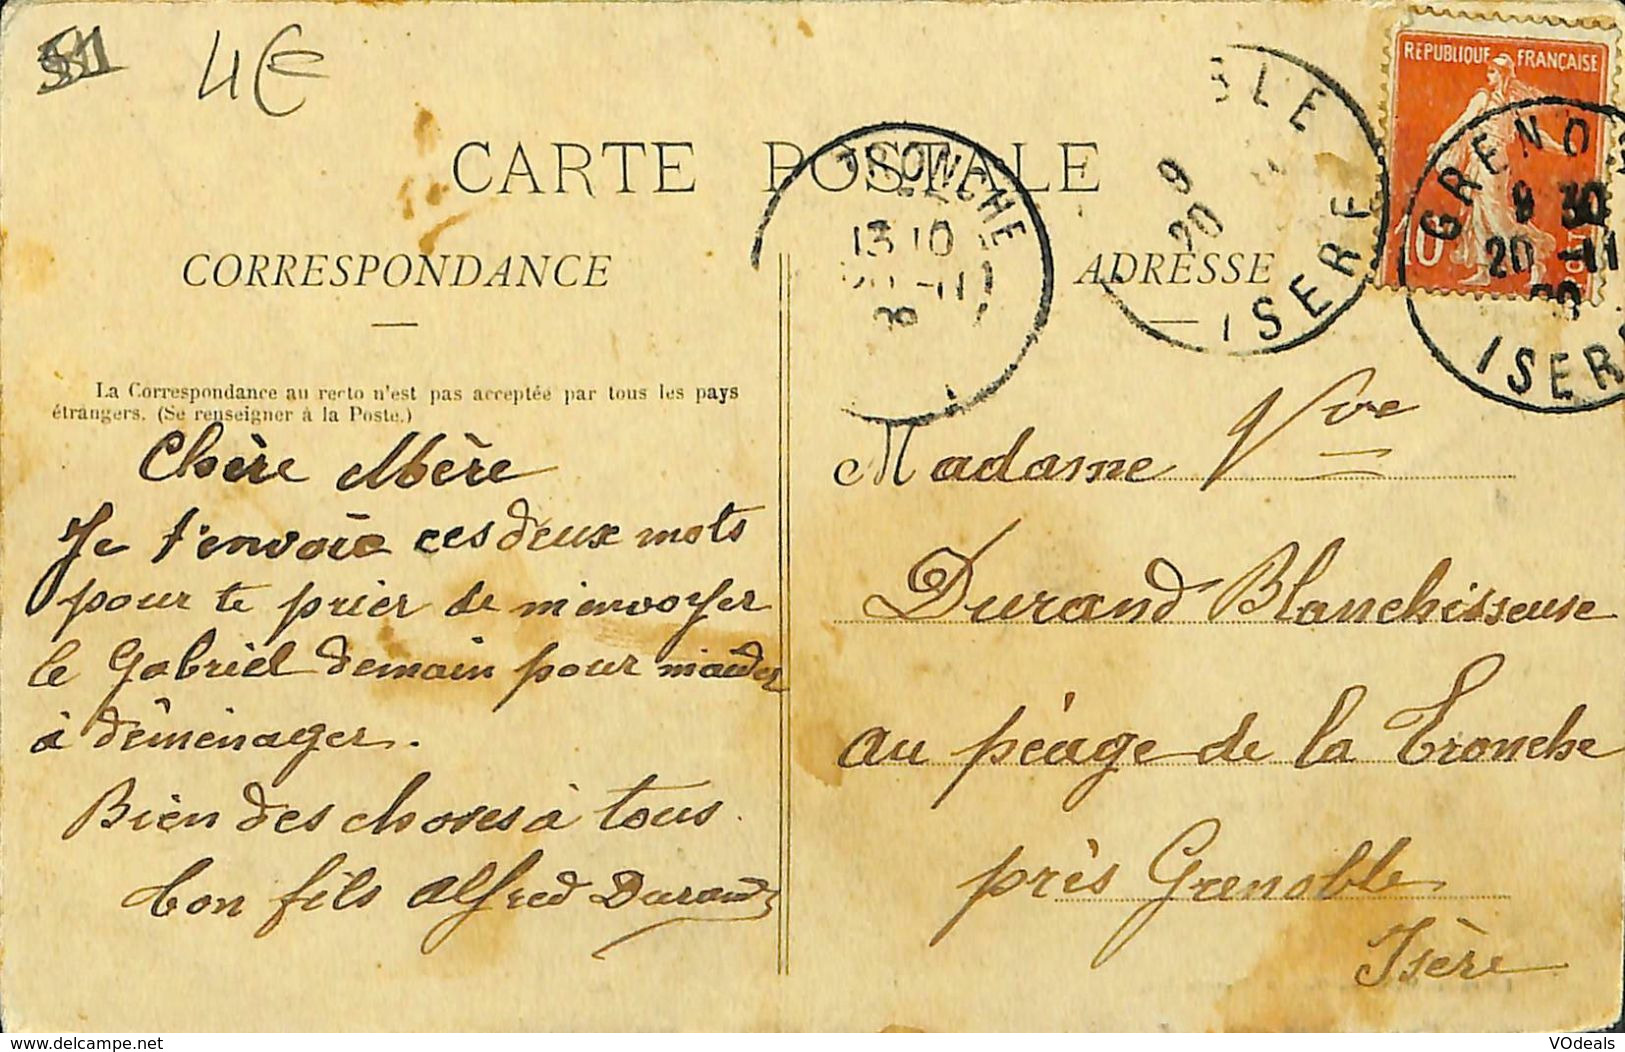 4€
CARTE POSTALE
CORRESPONDANCE
ADRESSE
REPUBLIQUE FRANÇAISE
10
TRONCHE
13 10
BLE
9
20
ISERE
GRENOB
9 30
20 -11
ISERE
La Correspondance au recto n'est pas acceptée par tous les pays
étrangers. (Se renseigner à la Poste.)
Chère Mère
Je t'envoie ces deux mots
pour te prier de m'envoyer
le Gabriel demain pour m'aider
à déménager.
Bien des choses à tous.
Ton fils Alfred Durand
Madame Vve
Durand Blanchisseuse
au péage de la Tronche
près Grenoble
Isère
VOdeals